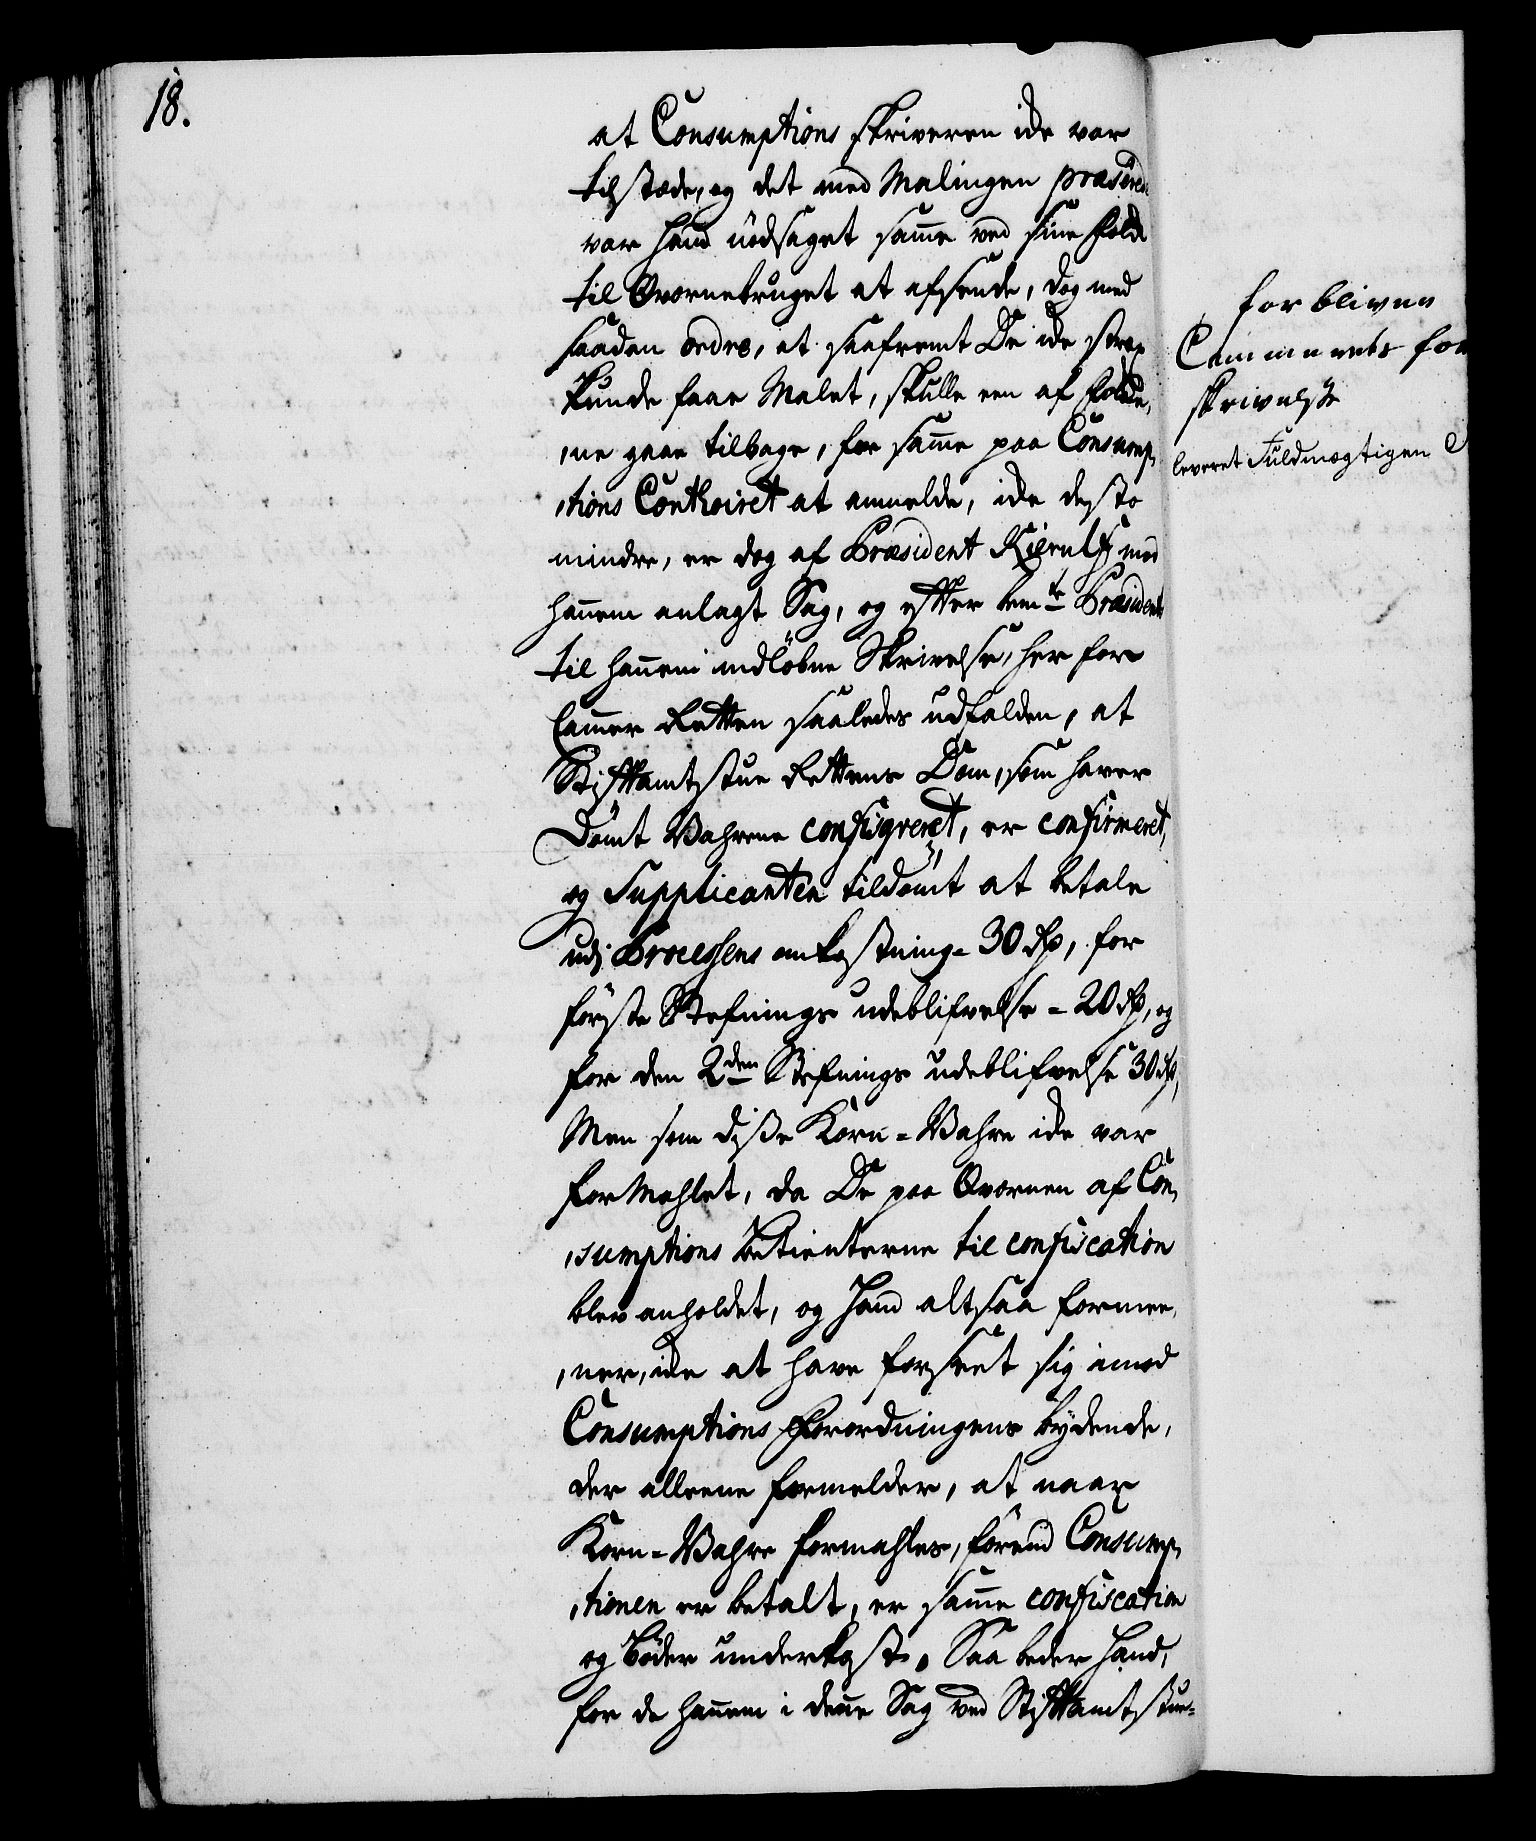 18.
at Consumptions skriveren icke var
tilstæde, og det med Malingen præsered
var hand nödsaget samme ved sine Folk
til Qvernebruget at afsende, dog med
saadan ordre, at saafremt De icke strax
kunde faae Malet, skulle een af Folke,
,ne gaae tilbage, for samme paa Consump,
,tions Contoiret at anmelde, icke desto
mindre, er dog af Præsident Kierulf med
hannem anlagt Sag, og efter bemte Præsident
til hannem indlöbne Skrivelse, her for
Cammer Retten saaledes udfalden, at
Stiftamtstue Rettens Dom, som haver
Dömt Vahrene confisqveret, er confirmeret,
og Supplicanten tildömt at betale
udj Processens omkostning = 30 rdr, for
förste Stefnings udeblifvelse = 20 rdr, og
for den 2den Stefnings udeblifvelse 30 rdr,
Men som disse Korn-Vahre icke var
formahlet, da De paa Qvernen af Con,
,sumptions betienterne til confiscation
blev anholdet, og Hand altsaa formee,
,ner, icke at have forseet sig imod
Consumptions Forordningens bydende,
der alleene formelder, at naar
Korn-Vahre formahles, förend Consump,
,tionen er betalt, er samme confiscation
og böder underkast. Saa beder Hand,
for de hannem i denne Sag ved Stiftamtstue-
forbliven
Cammerets for
skrivelse
leveret Fuldmægtigen